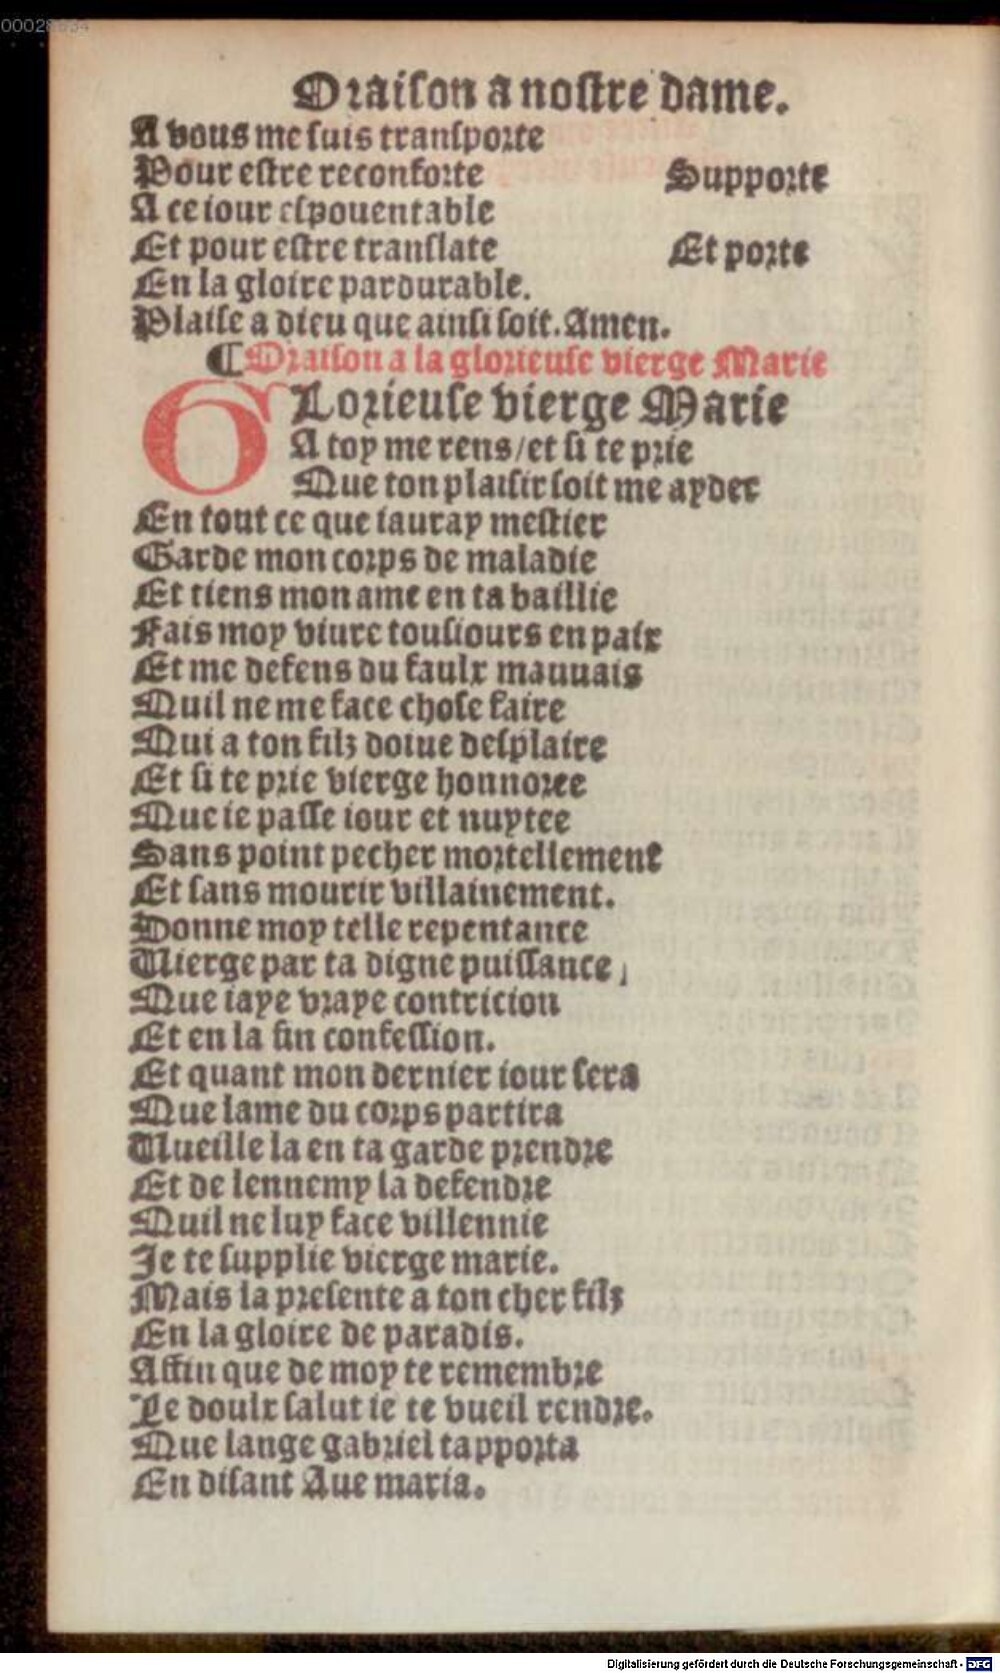 00028634
Oraiſon a noſtre dame.
A vous me ſuis tranſporte
Pour eſtre reconforte Supporte
A ce iour eſpouentable
Et pour eſtre tranſlate Et porte
En la gloire pardurable.
Plaiſe a dieu que ainſi ſoit. Amen.
¶ Oraiſon a la glorieuſe vierge Marie
GLorieuſe vierge Marie
A toy me rens/et ſi te prie
Que ton plaiſir ſoit me ayder
En tout ce que iauray meſtier
Garde mon corps de maladie
Et tiens mon ame en ta baillie
Fais moy viure touſiours en paix
Et me defens du faulx mauuais
Quil ne me face choſe faire
Qui a ton filz doiue deſplaire
Et ſi te prie vierge honnoree
Que ie paſſe iour et nuytee
Sans point pecher mortellement
Et ſans mourir villainement.
Donne moy telle repentance
Vierge par ta digne puiſſance
Que iaye vraye contricion
Et en la fin confeſſion.
Et quant mon dernier iour ſera
Que lame du corps partira
Vueille la en ta garde prendre
Et de lennemy la defendre
Quil ne luy face villennie
Je te ſupplie vierge marie.
Mais la preſente a ton cher filz
En la gloire de paradis.
Affin que de moy te remembre
Le doulx ſalut ie te vueil rendre.
Que lange gabriel tapporta
En diſant Aue maria.
Digitalisierung gefördert durch die Deutsche Forschungsgemeinschaft - DFG